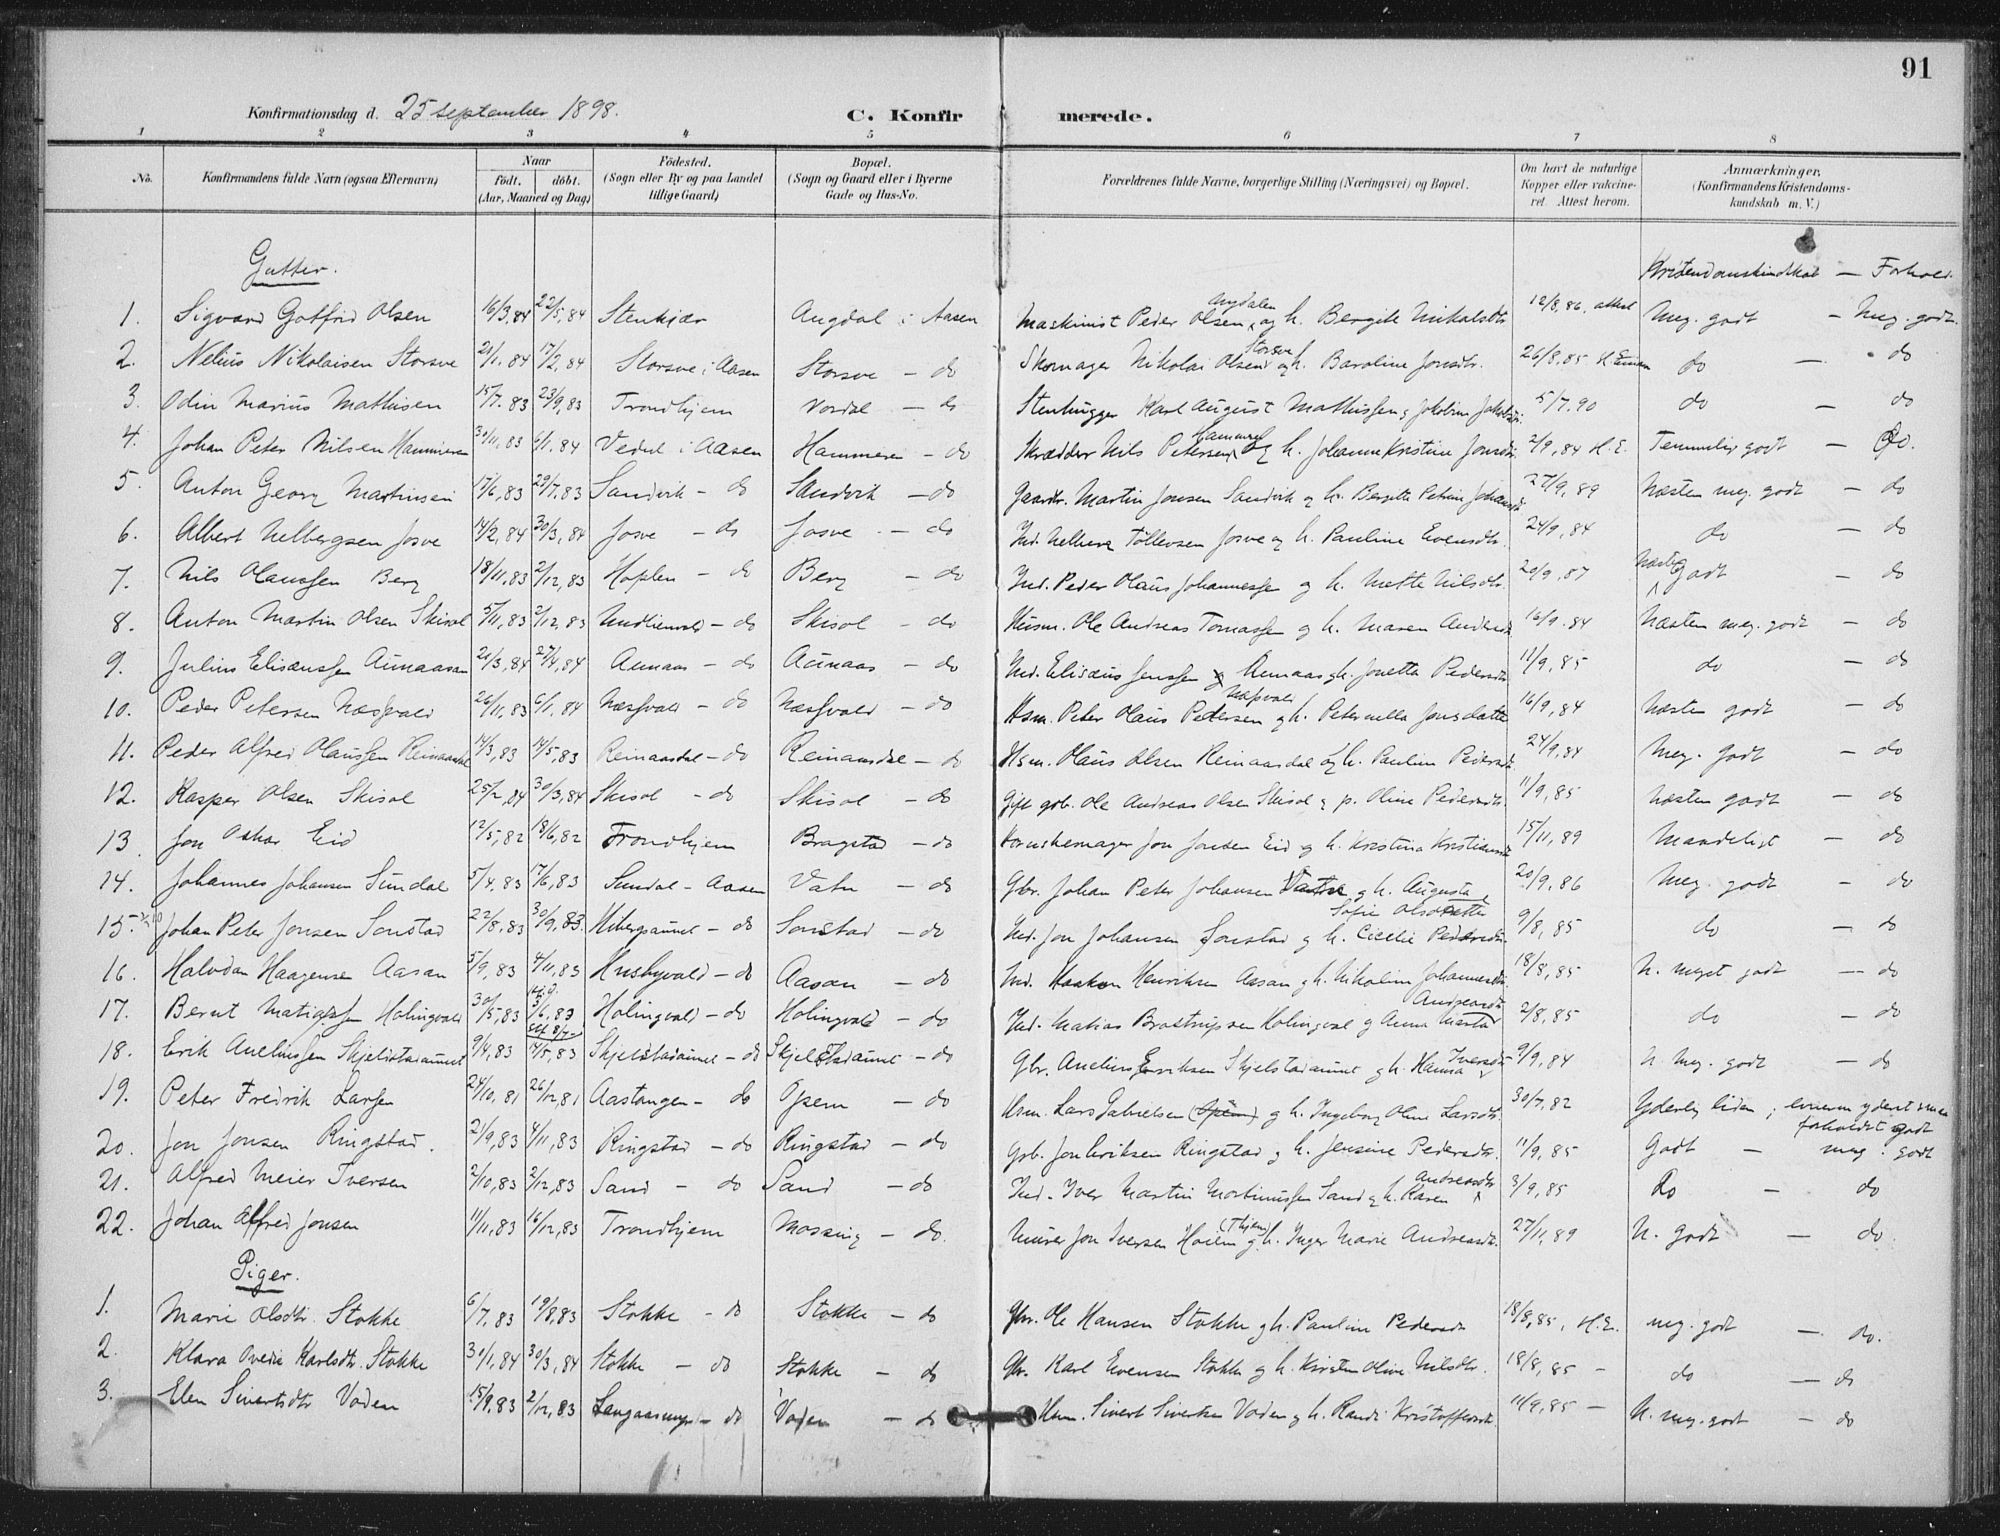 91
Konfirmationsdag d. 25 september 1898.
C. Konfirmerede.
1 2 3 4 5 6 7 8
No. Konfirmandens fulde Navn (ogsaa Efternavn) Naar født. døbt. (Aar, Maaned og Dag) Födested. (Sogn eller By og paa Landet tillige Gaard) Bopæl. (Sogn og Gaard eller i Byerne Gade og Hus-No. Forældrenes fulde Navne, borgerlige Stilling (Næringsvei) og Bopæl. Om havt de naturlige Kopper eller vakcineret. Attest herom. Anmærkninger, (Konfirmandens Kristendomskundskab m. V.)
Gutter. Kristendomskundskab — Forhold.
1. Sigvard Gotfrid Olsen 16/3,84 22/5,84 Stenkjær Augdal i Aasen Maskinist Peder Olsen Nydalen og h. Bergite Mikalsdtr 12/8,86, attest Meg. godt — Meg. godt.
2. Nelius Nikolaisen Storsve 21/1,84 17/2,84 Storsve i Aasen Storsve — do Skomager Nikolai Olsen Storsve og h. Baroline Jonsdtr. 26/8,85 do — do
3. Odin Marius Mathisen 15/7.83 23/9,83 Trondhjem Vordal — do Stenhugger Karl August Mathissen 5/7.90 do — do
4. Johan Peter Nilsen Hammeren 6/1,84 Vedul i Aasen Hammeren — do Skrædder Nils Petersen og h. Johanne Kristine Jonsdtr 2/9,84 H.E. Temmelig godt — do.
5. Anton Georg Martinsen 17/6,83 29/7,83 Sandvik — do Sandvik — do Gaardbr. Martin Jonsen Sandvik og h. Bergitte Petrine 27/9,89 Næsten meg. godt — do
6. Albert Nelbergsen Josve 14/2,84 30/3,84 Josve — do Josve — do Ind. Nelberg Tollevsen Josve og h. Pauline Evensdtr. 24/9,84 do — do
7. Nils Olaussen Berg 18/11,83 2/12,83 Hoplen — do Berg — do Ind. Peder Olaus Johannessen og h. Mette Nilsdtr. 20/9,87 Næsten Godt — do
8. Anton Martin Olsen Skisol 5/11,83 2/12,83 — do Skisol — do Husm. Ole Andreas Tomassen og h. Maren 16/9.84 Næsten meg. godt — do
9. Julius Elisæussen Aunaasen 21/3,84 27/4,84 Aunaas — do Aunaas — do Ind. Elisæus Jenssen Aunaas og h. Jonetta Pedersdtr 11/9,85 do — do
10. Peder Petersen Næsvald 26/11,83 6/1,84 Næssvald — do Næssvald — do Hsm. Peter Olaus Petersen Næsvald og h. Peternella Jonsdatter 16/9,84 Næsten godt — do
11. Peder Alfred Olaussen Reinaasdal 14/3,83 14/5,83 Reinaasdal — do Reinaasdal — do Hsm. Olaus Olsen Reinaasdal og h. Pauline Pedersdtr 24/9,84 Meg. godt — do
12. Kasper Olsen Skisol 25/2,84 30/3,84 Skisol — do Skisol — do Gift gdb. Ole Andreas Olsen Skisol og p. Oline Pedersdtr. 11/9,85 Næsten godt — do
13. Jon Oskar Eid 12/5,82 18/6,82 Trondhjem Bragstad — do Jon Jonsen Eid og h. Kristina 15/11,89 Maadeligt — do
14. Johannes Johansen Sundal 5/4,83 17/6,83 Sundal — Aasen Vatn — do Gbr. Johan Peter Johansen og h. Augusta Sofie Olsdatter 20/9,86 Meg. godt — do
15. Johan Peter Jonsen Sonstad 22/8,83 30/9,83 — do Sonstad — do Ind. Jon Johansen Sonstad og h. Cecelie Pedersdtr. 9/8,85 do — do
16. Halvdan Haagensen Aasan 5/9,83 4/11,83 Husbyvald — do Aasan — do Ind. Haakon Henriksen Aasan og h. Nikoline Johannesdtr. 18/8,85 N. meget godt — do
17. Bernt Matiassen Holingvald 30/5,83 3/6,83 Holingvald — do Holingvald — do Ind. Matias Brostrupsen Holingval og Anna Marta Andreasdtr 2/8,85 do — do
18. Erik Aneliussen Skjelstadaunet 9/4,83 14/5,83 Skjelstadaunet — do Skjelstadaunet — do Gbr. Anelius Eriksen Skjelstadaunet og h. Hanna Iversdtr 9/9,84 N. meg. godt — do
19. Peter Fredrik Larsen 24/10,81 26/12,81 Aastangen — do Opem — do Hsm. Lars Gabrielsen (Opem) og h. Ingeborg Oline Larsdtr. 30/7,82 Yderlig liden; evnerne yderst smaa forholdet godt
20. Jon Jonsen Ringstad. 21/9,83 4/11,83 Ringstad — do Ringstad — do Gbr. Jon Eriksen Ringstad og h. Jensine Pedersdtr. 11/9,85 Godt — meg. godt
21. Alfred Meier Iversen 2/10,83 2/12,83 Sand — do Sand — do Ind. Iver Martin Mortinussen Sand og h. Karen Andreasdtr 3/9,85 Do — do
22. Johan Alfred Jonsen 11/11,83 16/12,83 Trondhjem Mossing — do. Murer Jon Iversen Hoiem (Thjem) og h. Inger Marie Andreasdtr. 27/11,89 N. godt — do.
Piger.
1. Marie Olsdtr. Stokke 6/7,83 19/8,83 Stokke — do Stokke — do Gbr. Ole Hansen Stokke og h. Pauline Pedersdt 18/8,85, H.E. meg. godt — do.
2. Klara Ovedie Karlsdtr. Stokke 30/1,84 30/3,84 Stokke — do Stokke — do Gbr. Karl Evensen Stokke og h. Kirsten Oline Nilsdtr. 18/8,85 — do — do
3. Elen Sivertsdtr Vaden 15/9,83 2/12,83 Langaasmyr — do Vaden — do Hsm. Sivert Sivertsen Vaden og h. Randi Kristoffersdt. 11/9,85 — N. meg. godt — do